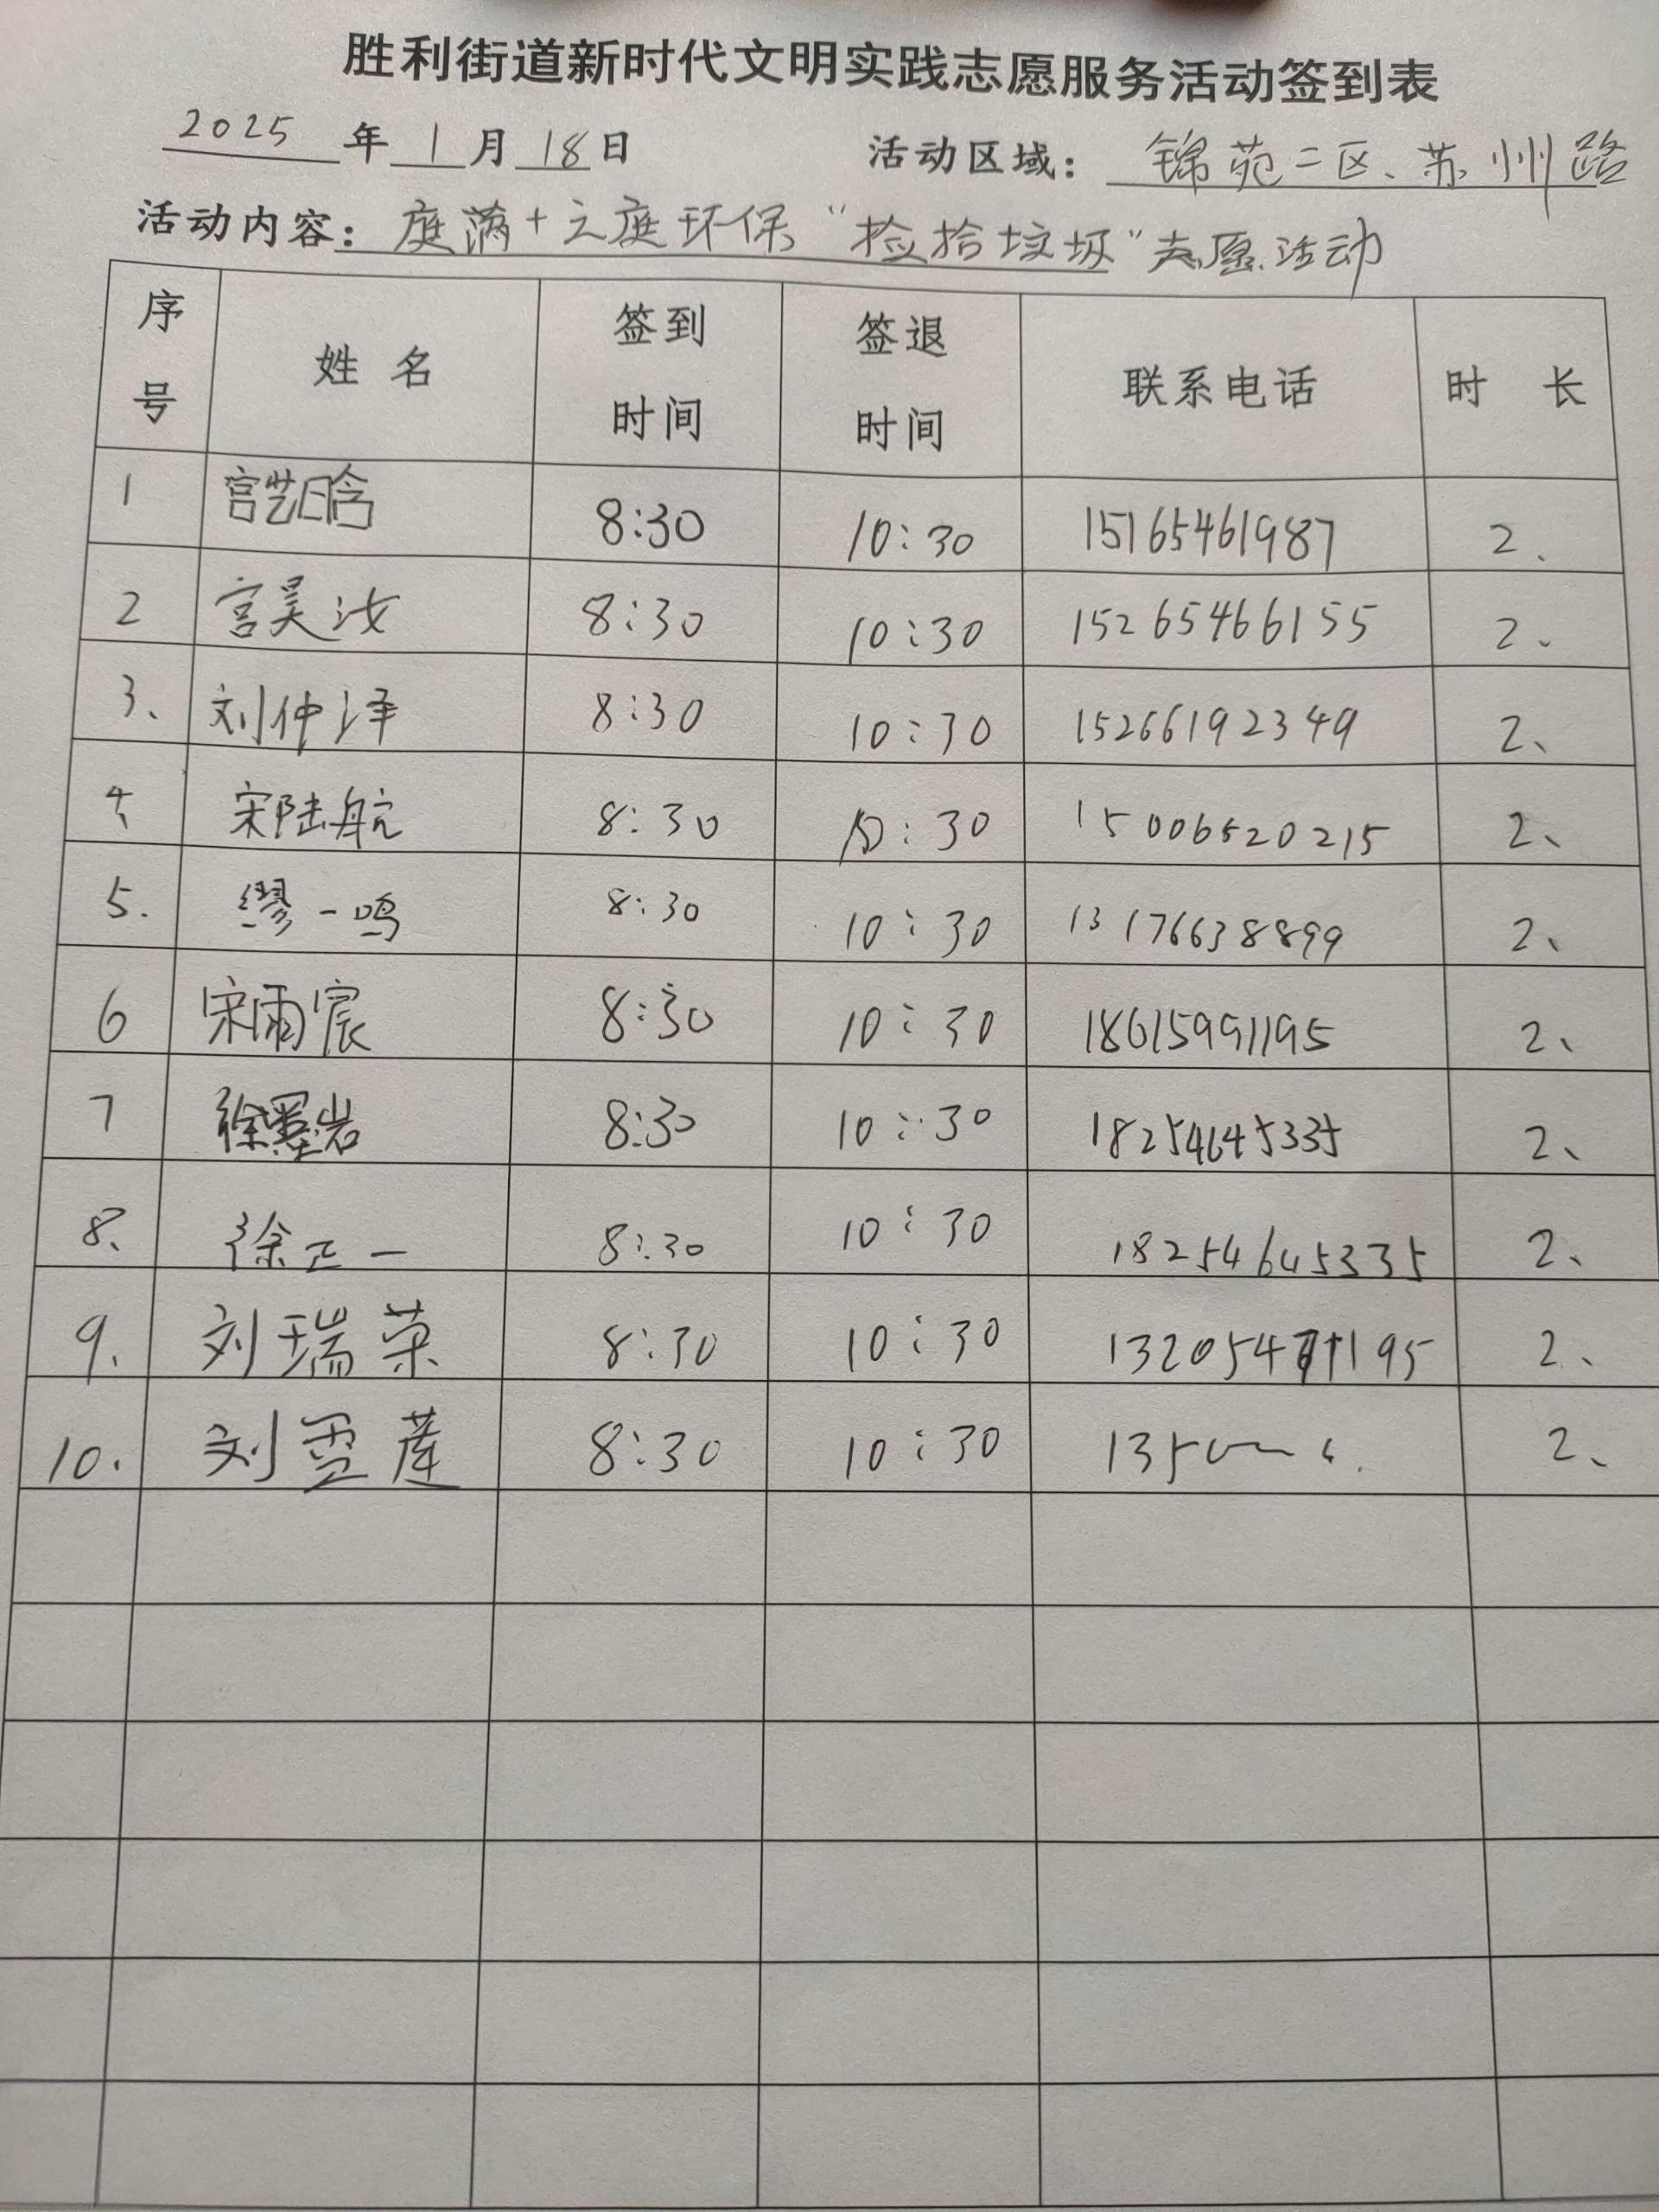 胜利街道新时代文明实践志愿服务活动签到表
2025 年 1 月 18 日 活动区域： 锦苑二区、苏州路
活动内容：庭满+之庭环保“捡拾垃圾”志愿活动
序号 姓名 签到时间 签退时间 联系电话 时长
1 宫艺晗 8:30 10:30 15165461987 2、
2 宫昊汝 8:30 10:30 15265466155 2、
3、 刘仲泽 8:30 10:30 15266192349 2、
4、 宋陆航 8:30 10:30 15006520215 2、
5. 缪一鸣 8:30 10:30 13176638899 2、
6 宋雨宸 8:30 10:30 18615991195 2、
7 徐墨岩 8:30 10:30 18254645335 2、
8、 徐正一 8:30 10:30 18254645335 2、
9、 刘瑞荣 8:30 10:30 2、
10、 刘 8:30 10:30 2、